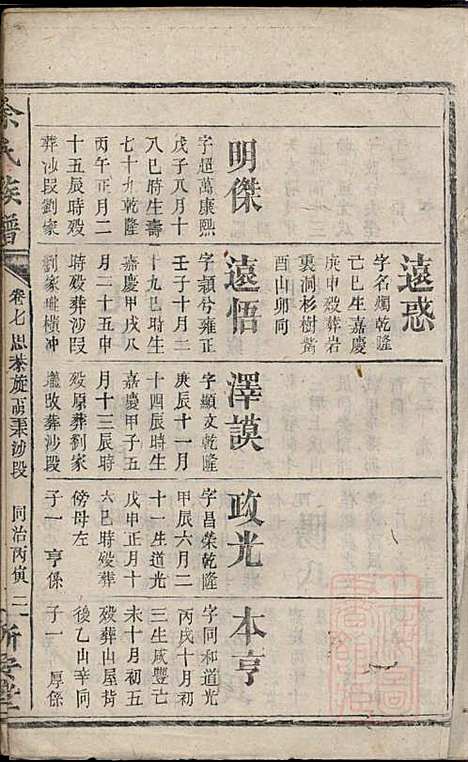 遠惑
字名燭乾隆
亡巳生嘉慶
庚申殁葬岩
裏洞杉樹
酉山卯向
明傑
字超萬康熙
戊子八月十
八巳時生壽
七十九乾隆
丙午正月二
十五辰時殁
葬沙段劉家
遠悟
字穎兮雍正
壬子十月二
十九巳時生
嘉慶甲戌八
月二十五申
時殁葬沙段
劉家 橫冲
澤謨
字顯文乾隆
庚辰十一月
十四辰時生
嘉慶甲子五
月十三辰時
殁原葬劉家
攺葬沙段
政光
字昌榮乾隆
甲辰六月二
十一生道光
戊申正月十
六巳時殁葬
傍母左
子一 亨係
本亨
字同和道光
丙戌十月初
三生咸豐亡
未十月初五
殁葬山屋背
後乙山幸同
子一 厚係
余氏族譜
卷七思恭旋 秉沙段
同治丙寅
二
新安堂